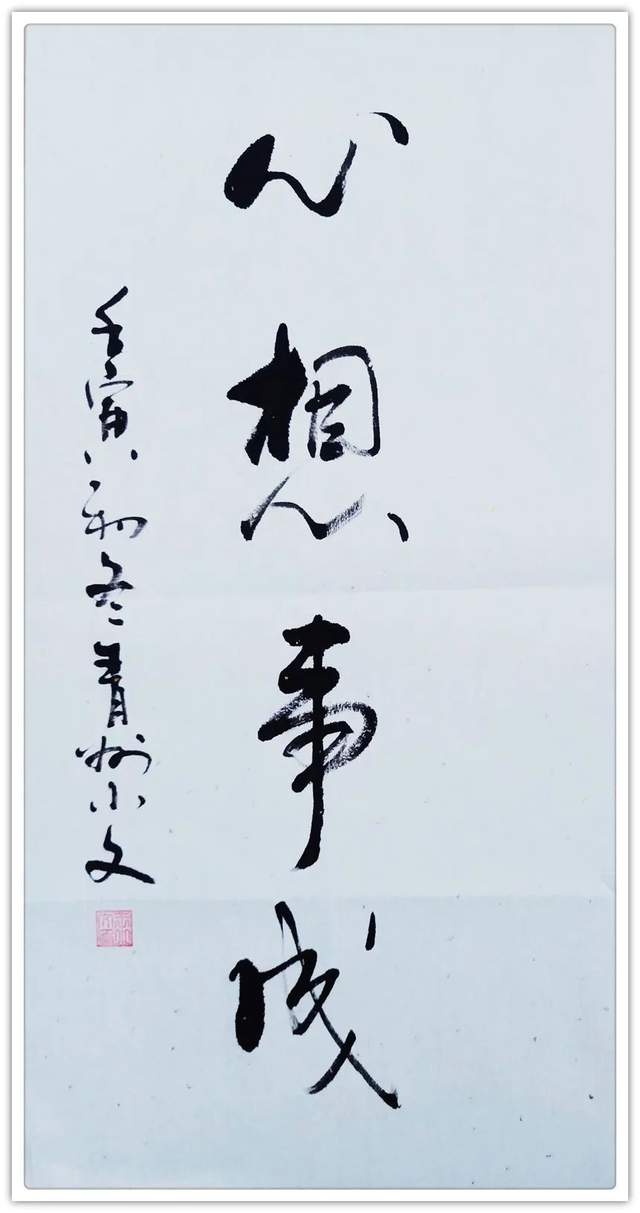 心想事成
壬寅初冬青州小文